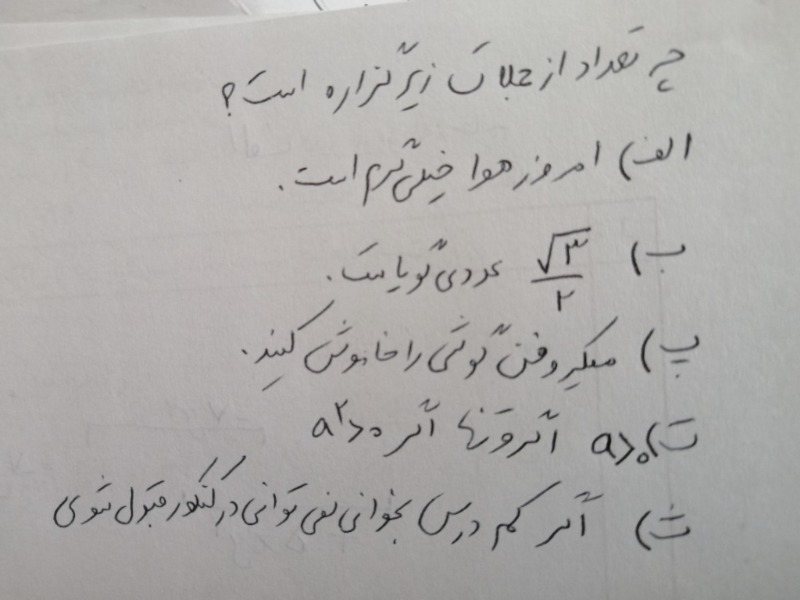 چه تعداد از جملات زیر گزاره است؟
الف) امروز هوا خیلی گرم است.
ب) √۳/۲ عددی گویاست.
پ) میکروفن گوشی را خاموش کنید.
ت) a>۰ اگر و تنها اگر a²>۰
ث) اگر کم درس بخوانی نمی توانی در کنکور قبول شوی